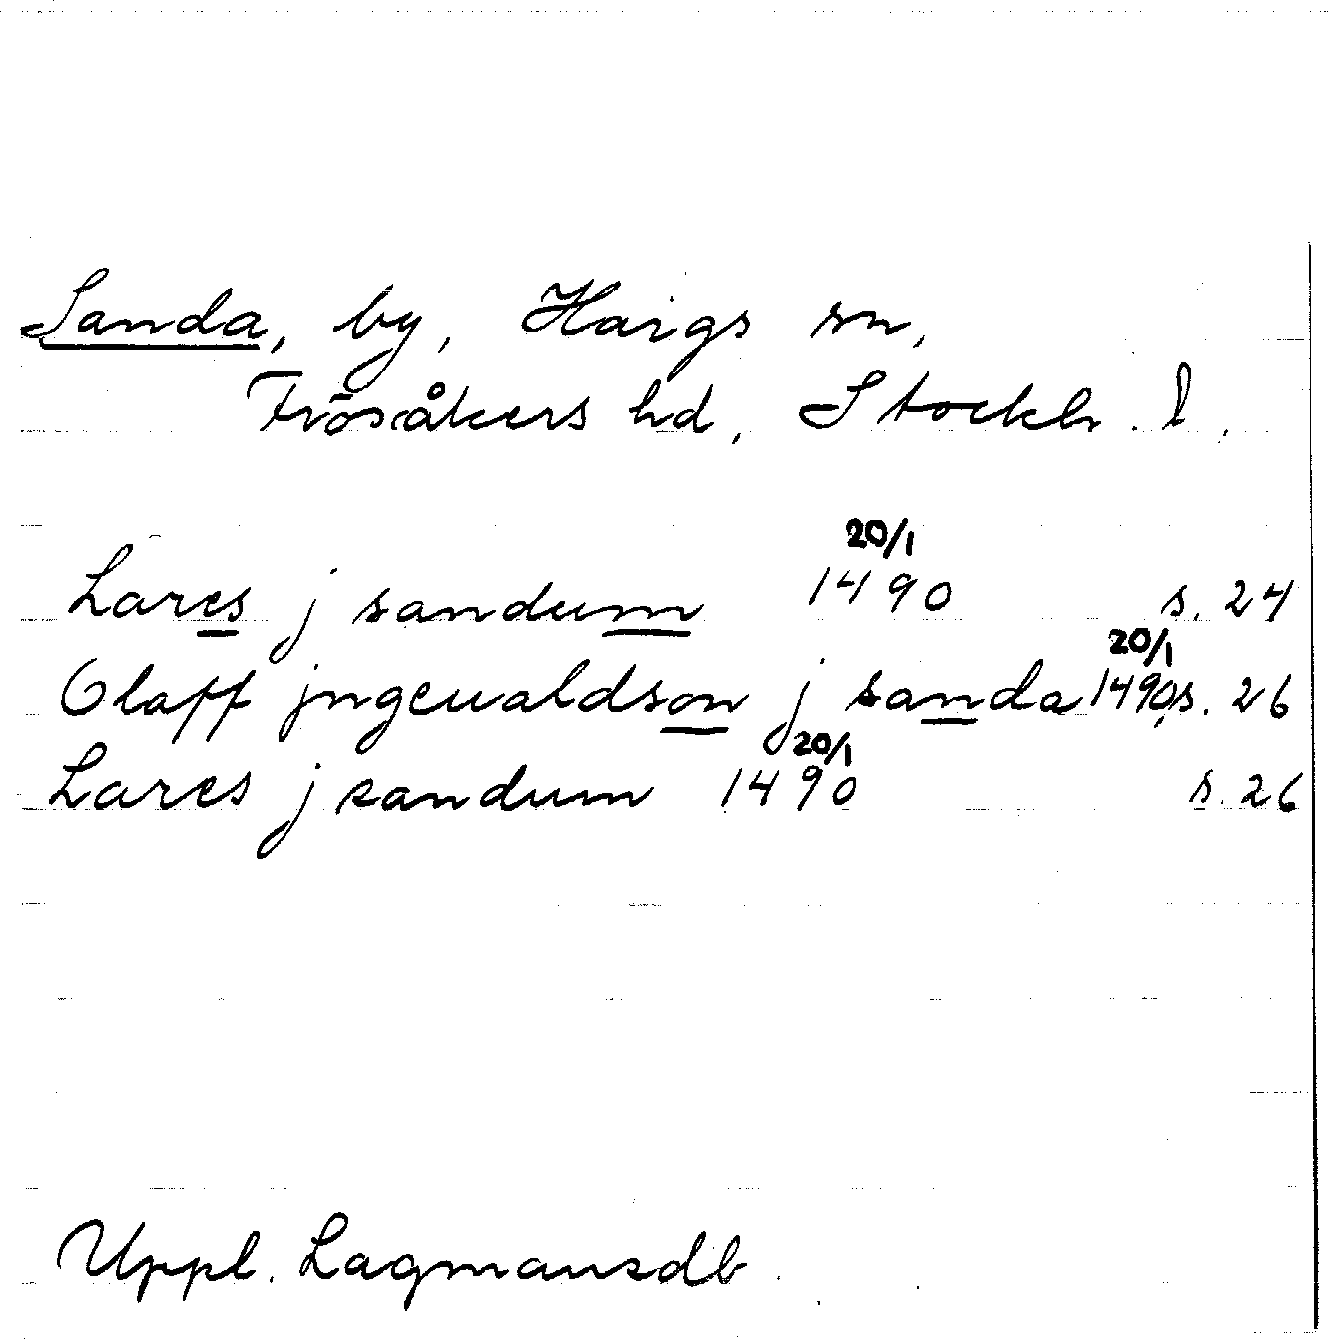 Sanda, by, Hargs sn,
Frösåkers hd, Stockh. l.
20/1
Lares j sandum 1490 s. 24
20/1
Olaff jngeualdson j sanda 1490, s. 26
20/1
Lares j sandum 1490 s. 26
Uppl. Lagmansdb.